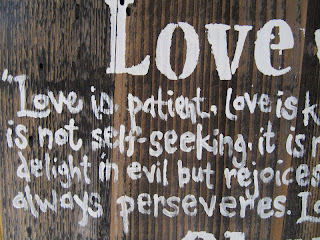 Love
"Love is patient, love is k
is not self-seeking, it is n
delight in evil but rejoices
always perseveres. Lo